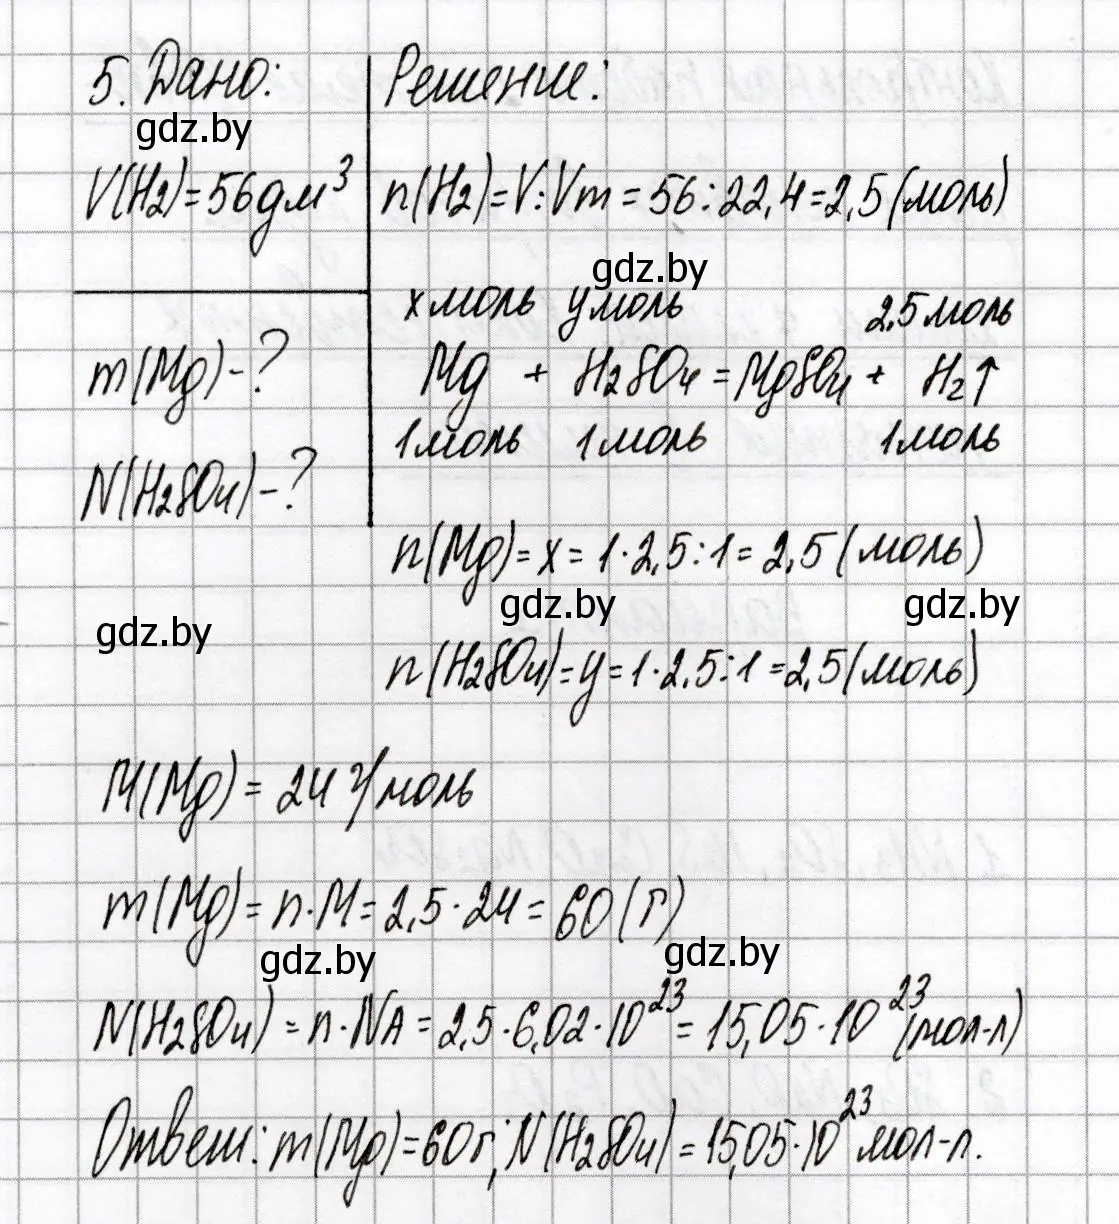 5. Дано:
gdz.by
V(H2)=56дм³
m(Mg)-?
N(H2SO4)-?
Решение:
n(H2)=V:Vm=56:22,4=2,5(моль)
gdz.by
x моль y моль 2,5 моль
Mg + H2SO4 = MgSO4 + H2↑
1 моль 1 моль 1 моль
n(Mg)=x=1·2,5:1=2,5(моль)
gdz.by gdz.by gdz.by
n(H2SO4)=y=1·2,5:1=2,5(моль)
M(Mg)=24 г/моль
m(Mg)=n·M=2,5·24=60(г)
gdz.by gdz.by
N(H2SO4)=n·NA=2,5·6,02·10²³=15,05·10²³(мол-л)
Ответ: m(Mg)=60г; N(H2SO4)=15,05·10²³ мол-л.